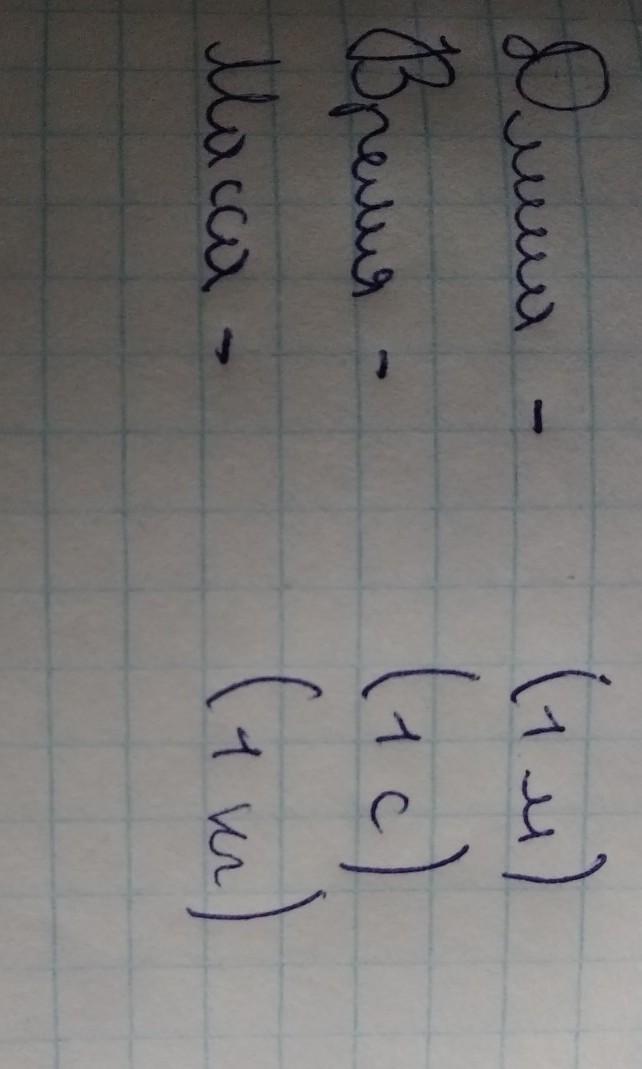 Длина - (1 м)
Время - (1 с)
Масса - (1 кг)